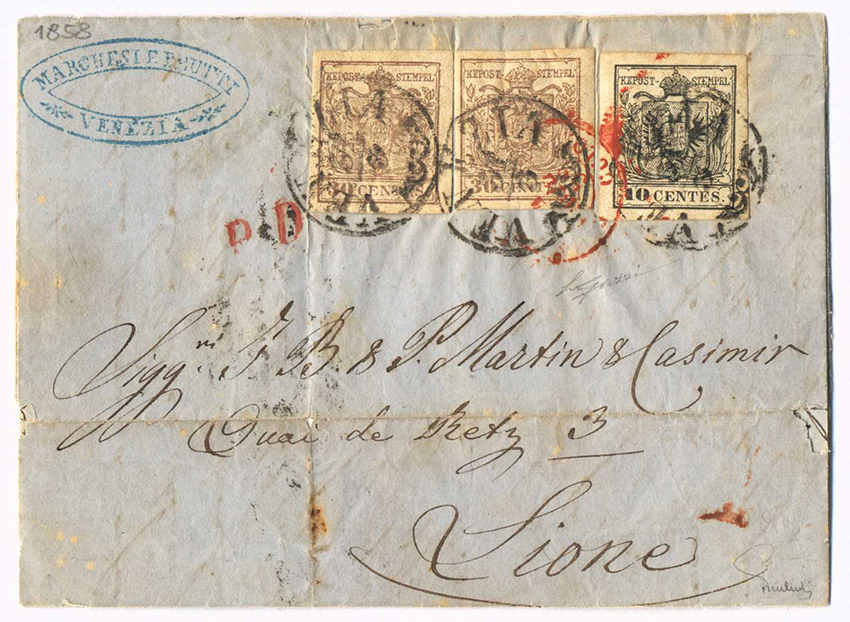 1858
VENEZIA
KKPOST-STEMPEL
KKPOST-STEMPEL
KKPOST-STEMPEL
30 CENTES.
30 CENTES.
10 CENTES.
P.D.
Sigg.ri J. B. & P. Martin & Casimir
Quai de Retz 3
Lione